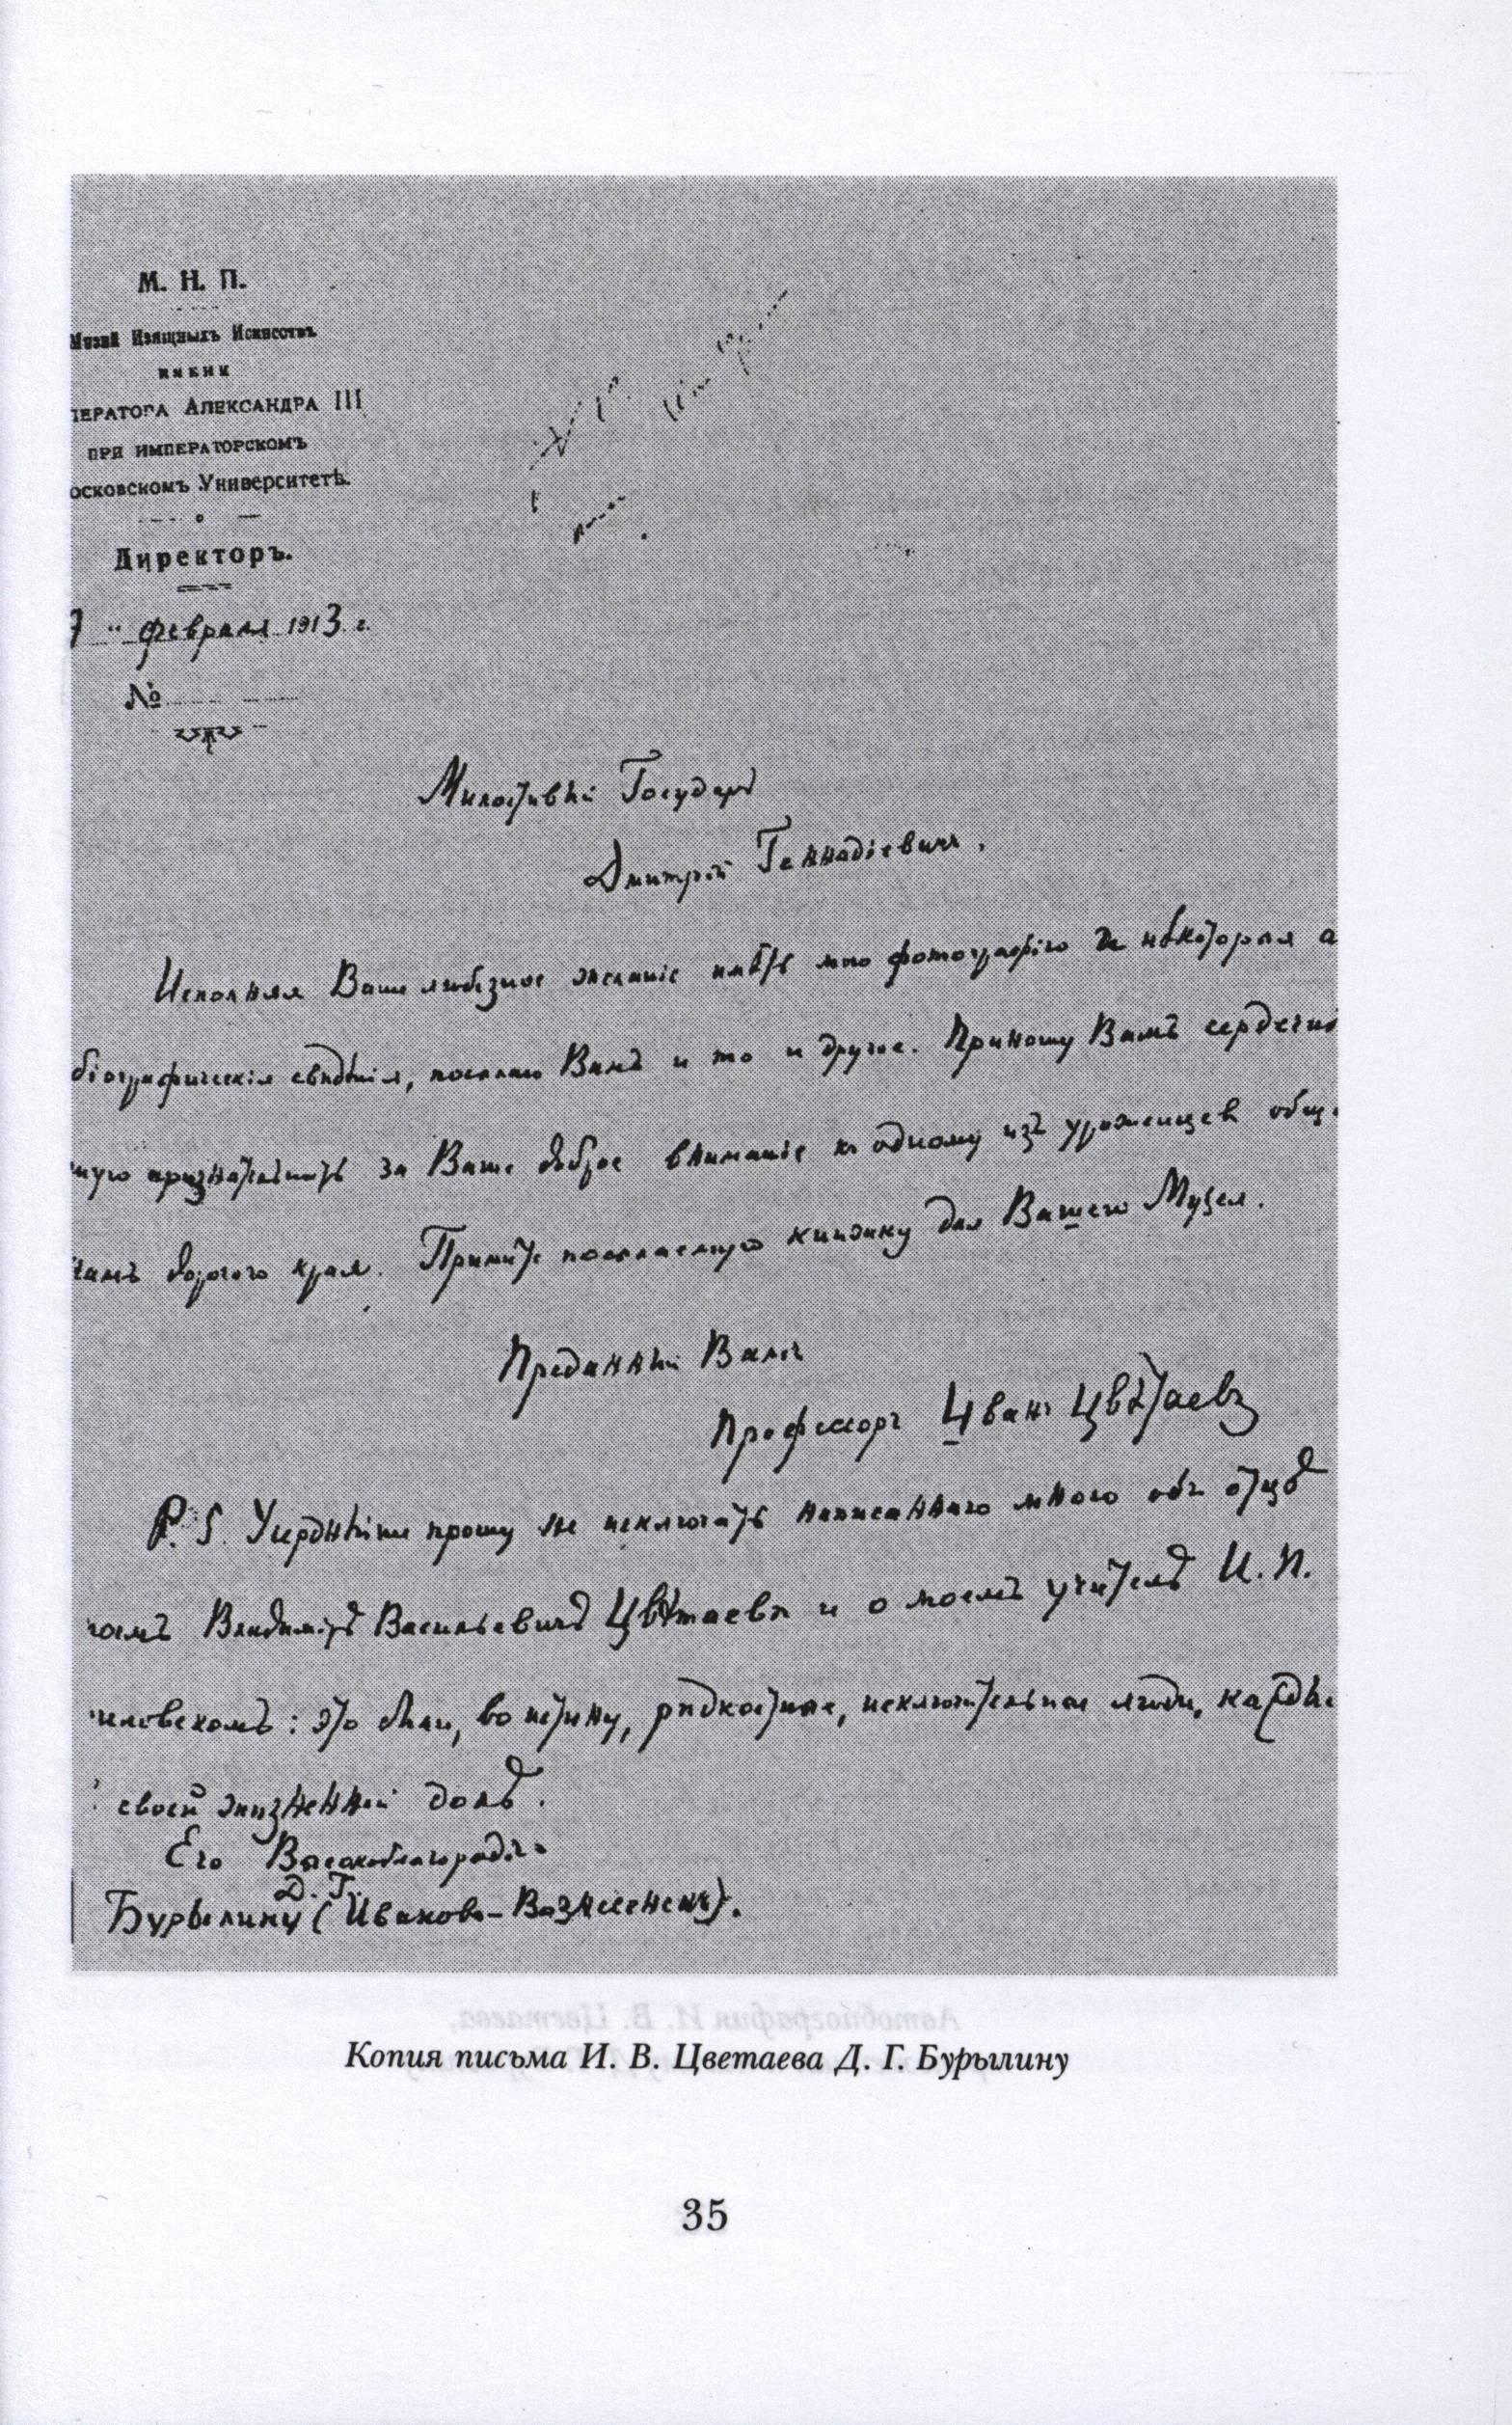 М. Н. П.
Музей Изящныхъ Искусствъ
имени
ператора Александра III
при императорскомъ
осковскомъ Университетѣ.
Директоръ.
7 " февраля 1913 г.
№
Милостивый Государь
Дмитрій Геннадіевичъ,
Исполняя Ваше любезное желаніе имѣть мою фотографію и нѣкоторыя а
біографическія свѣдѣнія, посылаю Вамъ и то и другое. Приношу Вамъ сердечнѣ
шую признательность за Ваше доброе вниманіе къ одному изъ уроженцевъ общ
намъ дорогого края. Примите посылаемую книжку для Вашего Музея.
Преданный Вамъ
Профессоръ Иванъ Цвѣтаевъ
P. S. Усерднѣйше прошу не исключать написаннаго мною объ отцѣ
моемъ Владимірѣ Васильевичѣ Цвѣтаевѣ и о моемъ учителѣ И. П.
: это были, во истину, рѣдкостные, исключительные люди, кажды
своей жизненной долѣ.
Его Высокоблагородію
Д. Г.
Бурылину (Иваново-Вознесенскъ).
Копия письма И. В. Цветаева Д. Г. Бурылину
35